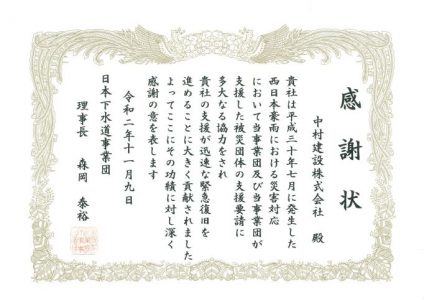 感謝状
中村建設株式会社 殿
貴社は平成三十年七月に発生した
西日本豪雨における災害対応
において当事業団及び当事業団が
支援した被災団体の支援要請に
多大なる協力をされ
貴社の支援が迅速な緊急復旧を
進めることに大きく貢献されました
よってここにその功績に対し深く
感謝の意を表します
令和二年十一月九日
日本下水道事業団
理事長 森岡 泰裕